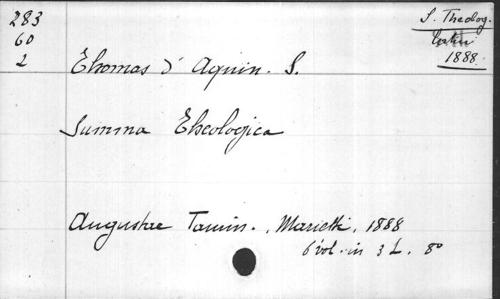 283
60
2
S. Theolog.
1888.
Thomas d' Aquin. S.
Summa Theologica
Augustae Taurin., Marietti, 1888
6 vol. in 3 L. 8°